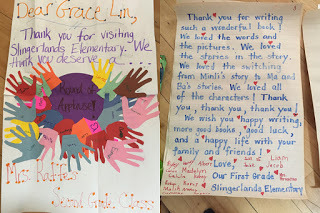 Dear Grace Lin,
Thank you for visiting
Slingerlands Elementary. We
think you deserve a...
Round of
Applause!
Mrs.
Second Grade Class
Thank you for writing
such a wonderful book!
We loved the words and
the pictures. We loved
the stories in the story.
We loved the switching
from Minli's story to Ma and
Ba's stories. We loved all
of the characters! Thank
you, thank you, thank you!
We wish you happy writing,
more good books, good luck,
and a happy life with your
family and friends!
Love,
Our First Grade
Slingerlands Elementary
Liam
Madelyn